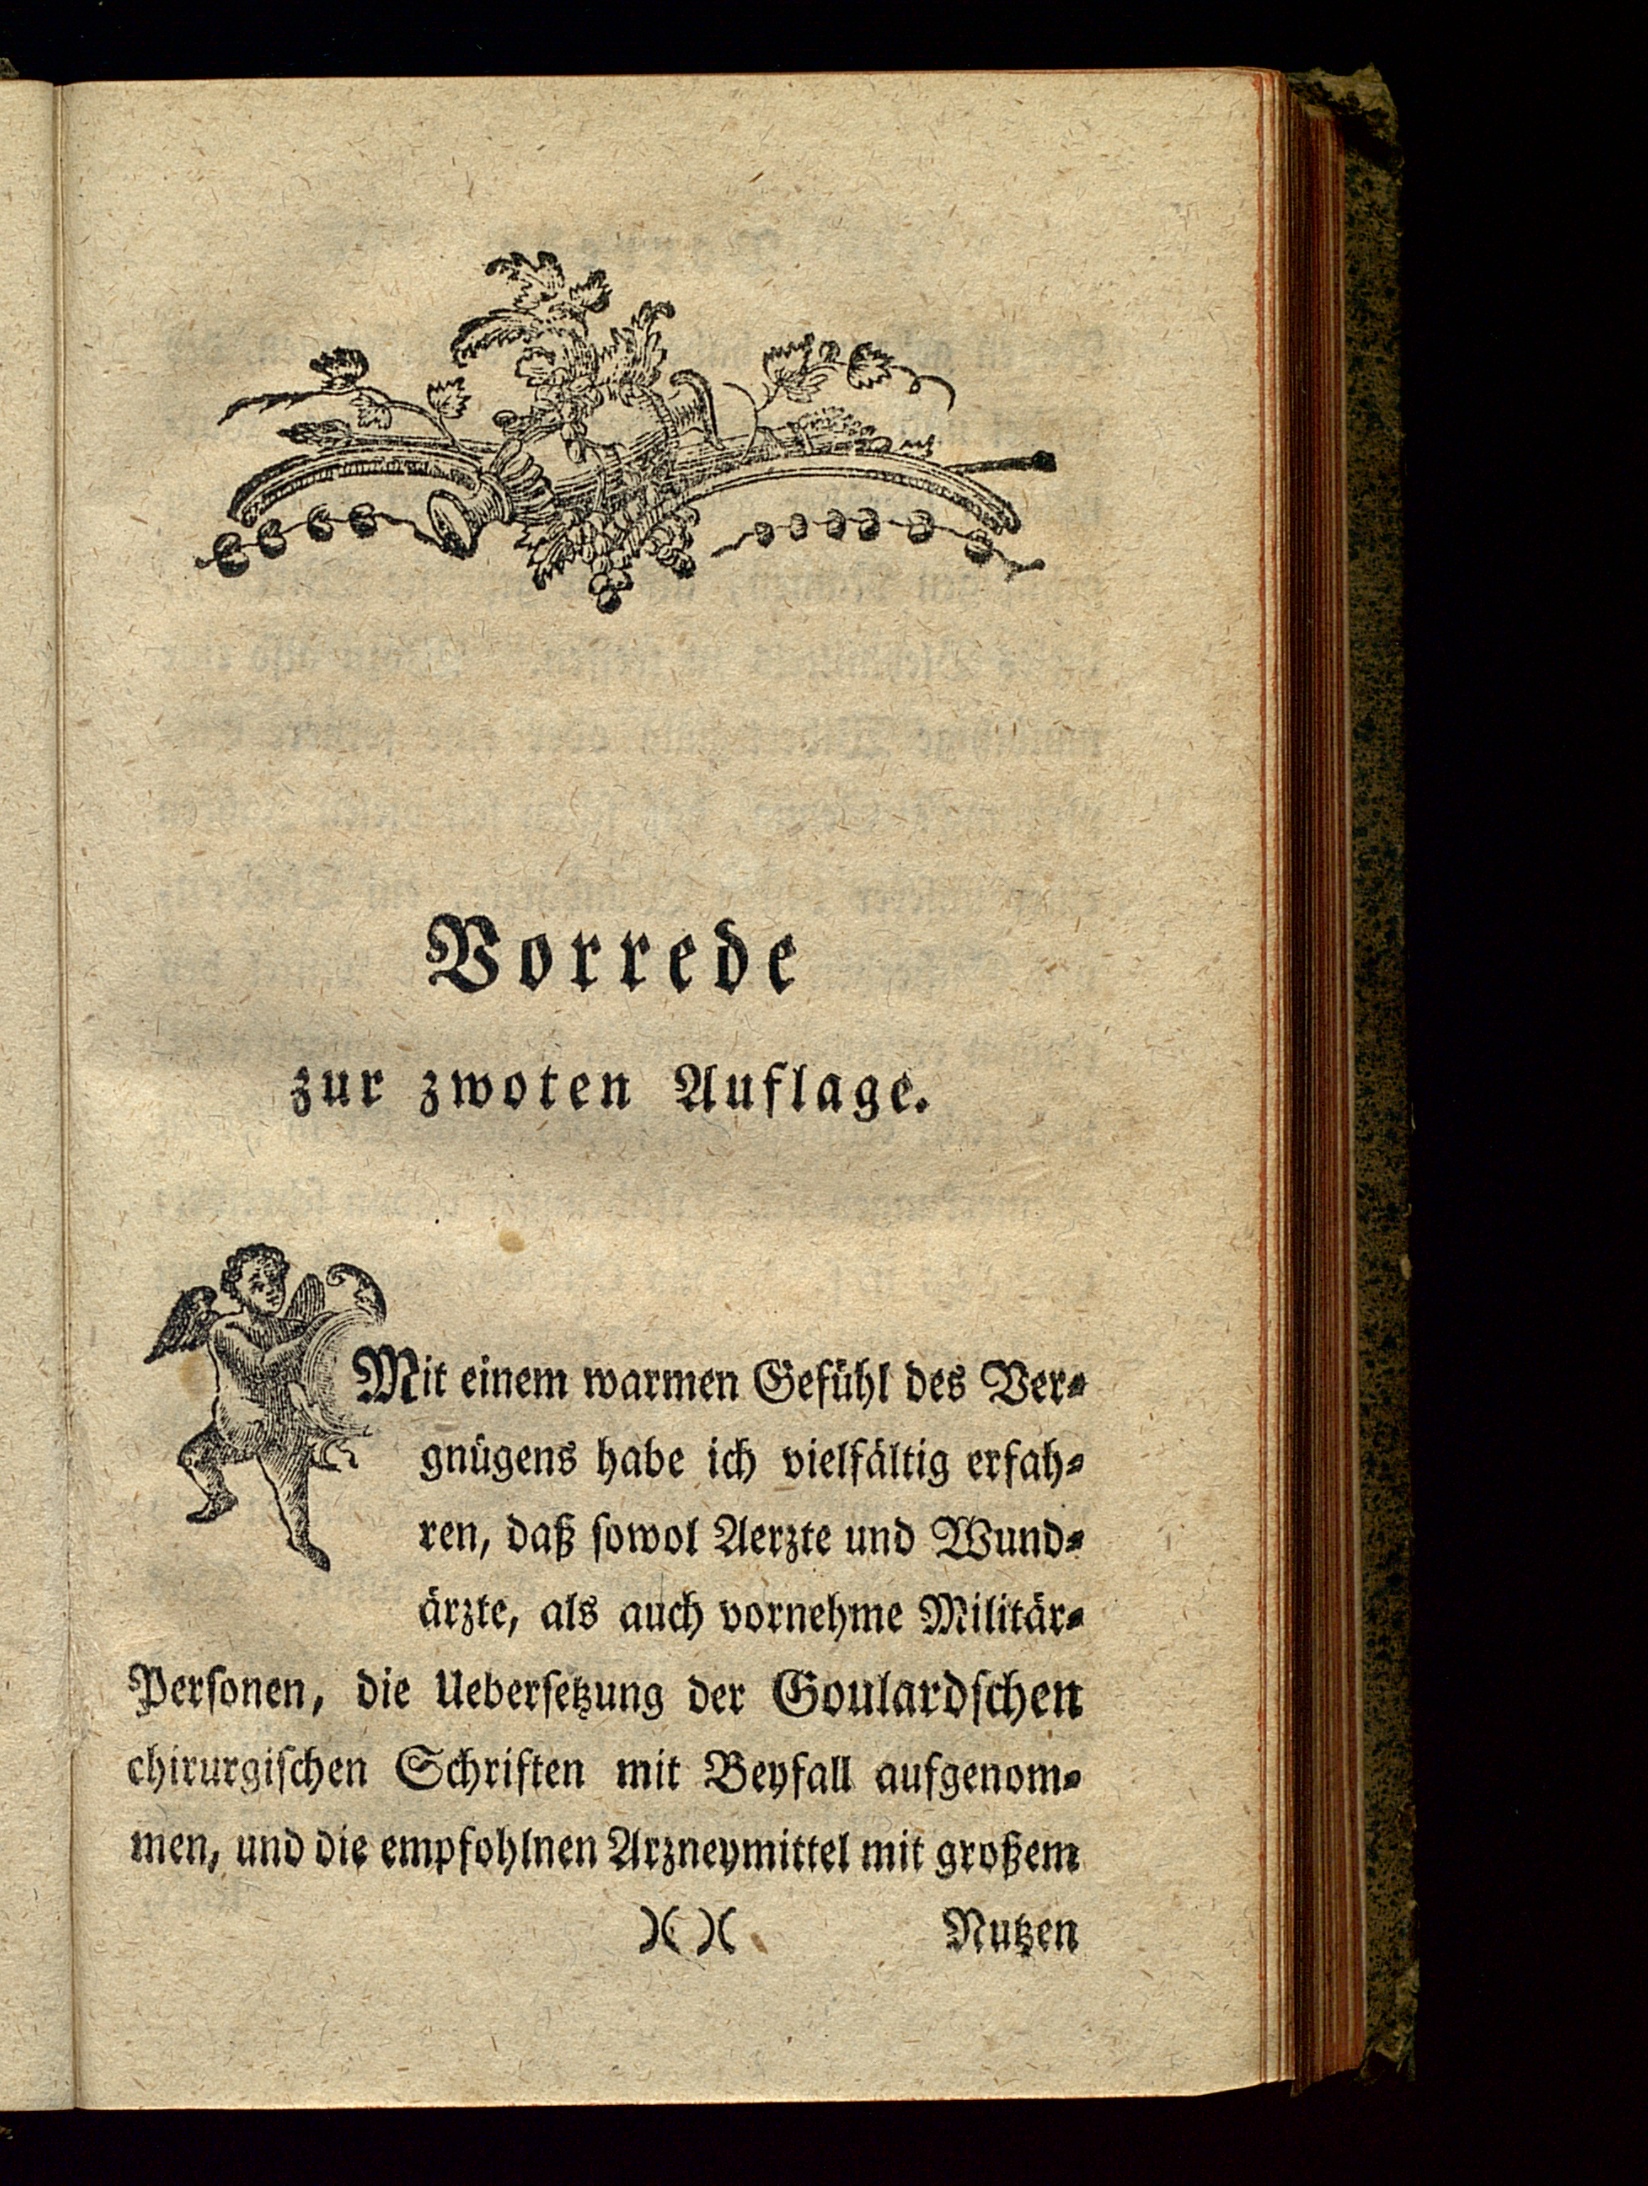 Vorrede
zur zwoten Auflage.
Mit einem warmen Gefühl des Ver⸗
gnügens habe ich vielfältig erfah⸗
ren, daß ſowol Aerzte und Wund⸗
ärzte, als auch vornehme Militär⸗
Perſonen, die Ueberſetzung der Goulardſchen
chirurgiſchen Schriften mit Beyfall aufgenom⸗
men, und die empfohlnen Arzneymittel mit großem
)( )( Nutzen